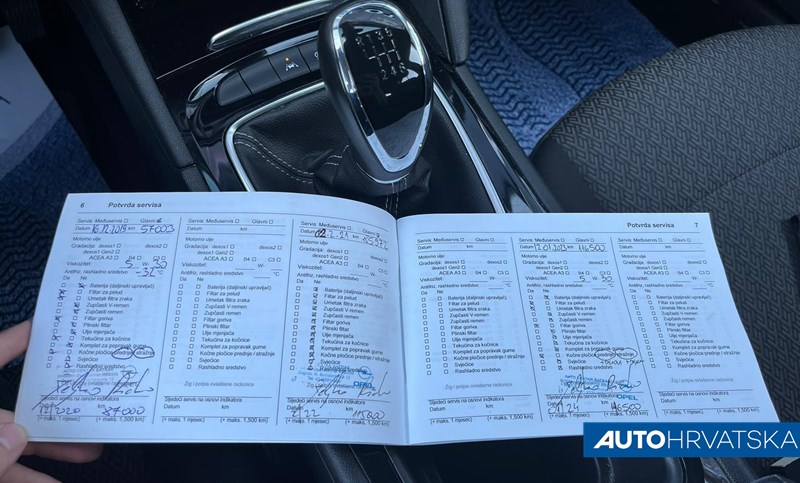 6 Potvrda servisa
Servis Međuservis Glavni
Datum 16.12.2019 km 57003
Motorno ulje
Gradacija: dexos1 dexos2
dexos1 Gen2
ACEA A3 B4 C3
Viskozitet: 5 W- 30
Antifriz, rashladno sredstvo -32 °C
Da Ne
Baterija (daljinski upravljač)
Filtar za pelud
Umetak filtra zraka
Zupčasti remen
Zupčasti V-remen
Filtar goriva
Plinski filtar
Ulje mjenjača
Tekućina za kočnice
Komplet za popravak gume
Kočne pločice prednje / stražnje
Svjećice
Rashladno sredstvo
Sljedeći servis na osnovi indikatora
12/2020 km 87000
(+ maks. 1 mjesec) (+ maks. 1,500 km)
Servis Međuservis Glavni
Datum km
Motorno ulje
Gradacija: dexos1 dexos2
dexos1 Gen2
ACEA A3 B4 C3
Viskozitet: W-
Antifriz, rashladno sredstvo °C
Da Ne
Baterija (daljinski upravljač)
Filtar za pelud
Umetak filtra zraka
Zupčasti remen
Zupčasti V-remen
Filtar goriva
Plinski filtar
Ulje mjenjača
Tekućina za kočnice
Komplet za popravak gume
Kočne pločice prednje / stražnje
Svjećice
Rashladno sredstvo
Žig i potpis ovlaštene radionice
Sljedeći servis na osnovi indikatora
Datum km
(+ maks. 1 mjesec) (+ maks. 1,500 km)
Servis Međuservis Glavni
Datum km
Motorno ulje
Gradacija: dexos1 dexos2
dexos1 Gen2
ACEA A3 B4 C3
Viskozitet: W-
Antifriz, rashladno sredstvo °C
Da Ne
Baterija (daljinski upravljač)
Filtar za pelud
Umetak filtra zraka
Zupčasti remen
Zupčasti V-remen
Filtar goriva
Plinski filtar
Ulje mjenjača
Tekućina za kočnice
Komplet za popravak gume
Kočne pločice prednje / stražnje
Svjećice
OPEL
Sljedeći servis na osnovi indikatora
km 115000
(+ maks. 1 mjesec) (+ maks. 1,500 km)
Potvrda servisa 7
Servis Međuservis Glavni
Datum km
Motorno ulje
Gradacija: dexos1 dexos2
dexos1 Gen2
ACEA A3 B4 C3
Viskozitet: W-
Antifriz, rashladno sredstvo °C
Da Ne
Baterija (daljinski upravljač)
Filtar za pelud
Umetak filtra zraka
Zupčasti remen
Zupčasti V-remen
Filtar goriva
Plinski filtar
Ulje mjenjača
Tekućina za kočnice
Komplet za popravak gume
Kočne pločice prednje / stražnje
Svjećice
Rashladno sredstvo
Žig i potpis ovlaštene radionice
Sljedeći servis na osnovi indikatora
Datum km
(+ maks. 1 mjesec) (+ maks. 1,500 km)
Servis Međuservis Glavni
Datum 12.01.2023 km 116500
Motorno ulje
Gradacija: dexos1 dexos2
dexos1 Gen2
ACEA A3 B4 C3
Viskozitet: 5 W- 30
Antifriz, rashladno sredstvo °C
Da Ne
Baterija (daljinski upravljač)
Filtar za pelud
Umetak filtra zraka
Zupčasti remen
Zupčasti V-remen
Filtar goriva
Plinski filtar
Ulje mjenjača
Tekućina za kočnice
Komplet za popravak gume
Kočne pločice prednje / stražnje
Svjećice
Rashladno sredstvo
OPEL
Sljedeći servis na osnovi indikatora
km 146500
(+ maks. 1 mjesec) (+ maks. 1,500 km)
Servis Međuservis Glavni
Datum km
Motorno ulje
Gradacija: dexos1 dexos2
dexos1 Gen2
ACEA A3 B4 C3
Viskozitet: W-
Antifriz, rashladno sredstvo °C
Da Ne
Baterija (daljinski upravljač)
Filtar za pelud
Umetak filtra zraka
Zupčasti remen
Zupčasti V-remen
Filtar goriva
Plinski filtar
Ulje mjenjača
Tekućina za kočnice
Komplet za popravak gume
Kočne pločice prednje / stražnje
Svjećice
Rashladno sredstvo
Žig i potpis ovlaštene radionice
Sljedeći servis na osnovi indikatora
Datum km
(+ maks. 1 mjesec) (+ maks. 1,500 km)
R 1 3 5
2 4 6
AUTOHRVATSKA